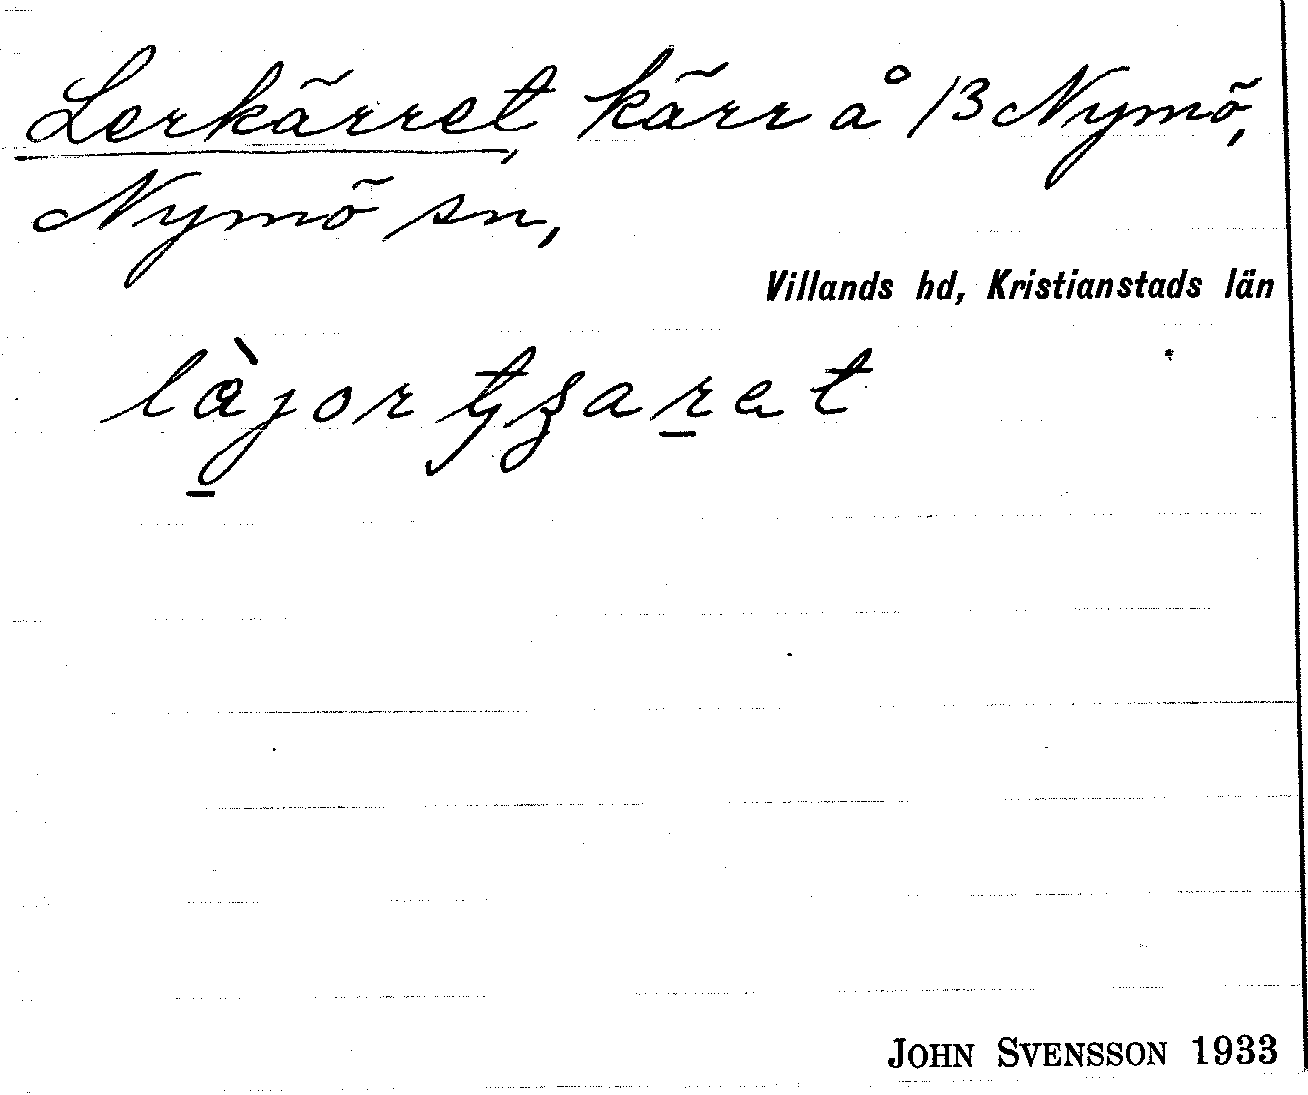 Lerkärret, kärr å 13 Nymö,
Nymö sn,
Villands hd, Kristianstads län
JOHN SVENSSON 1933